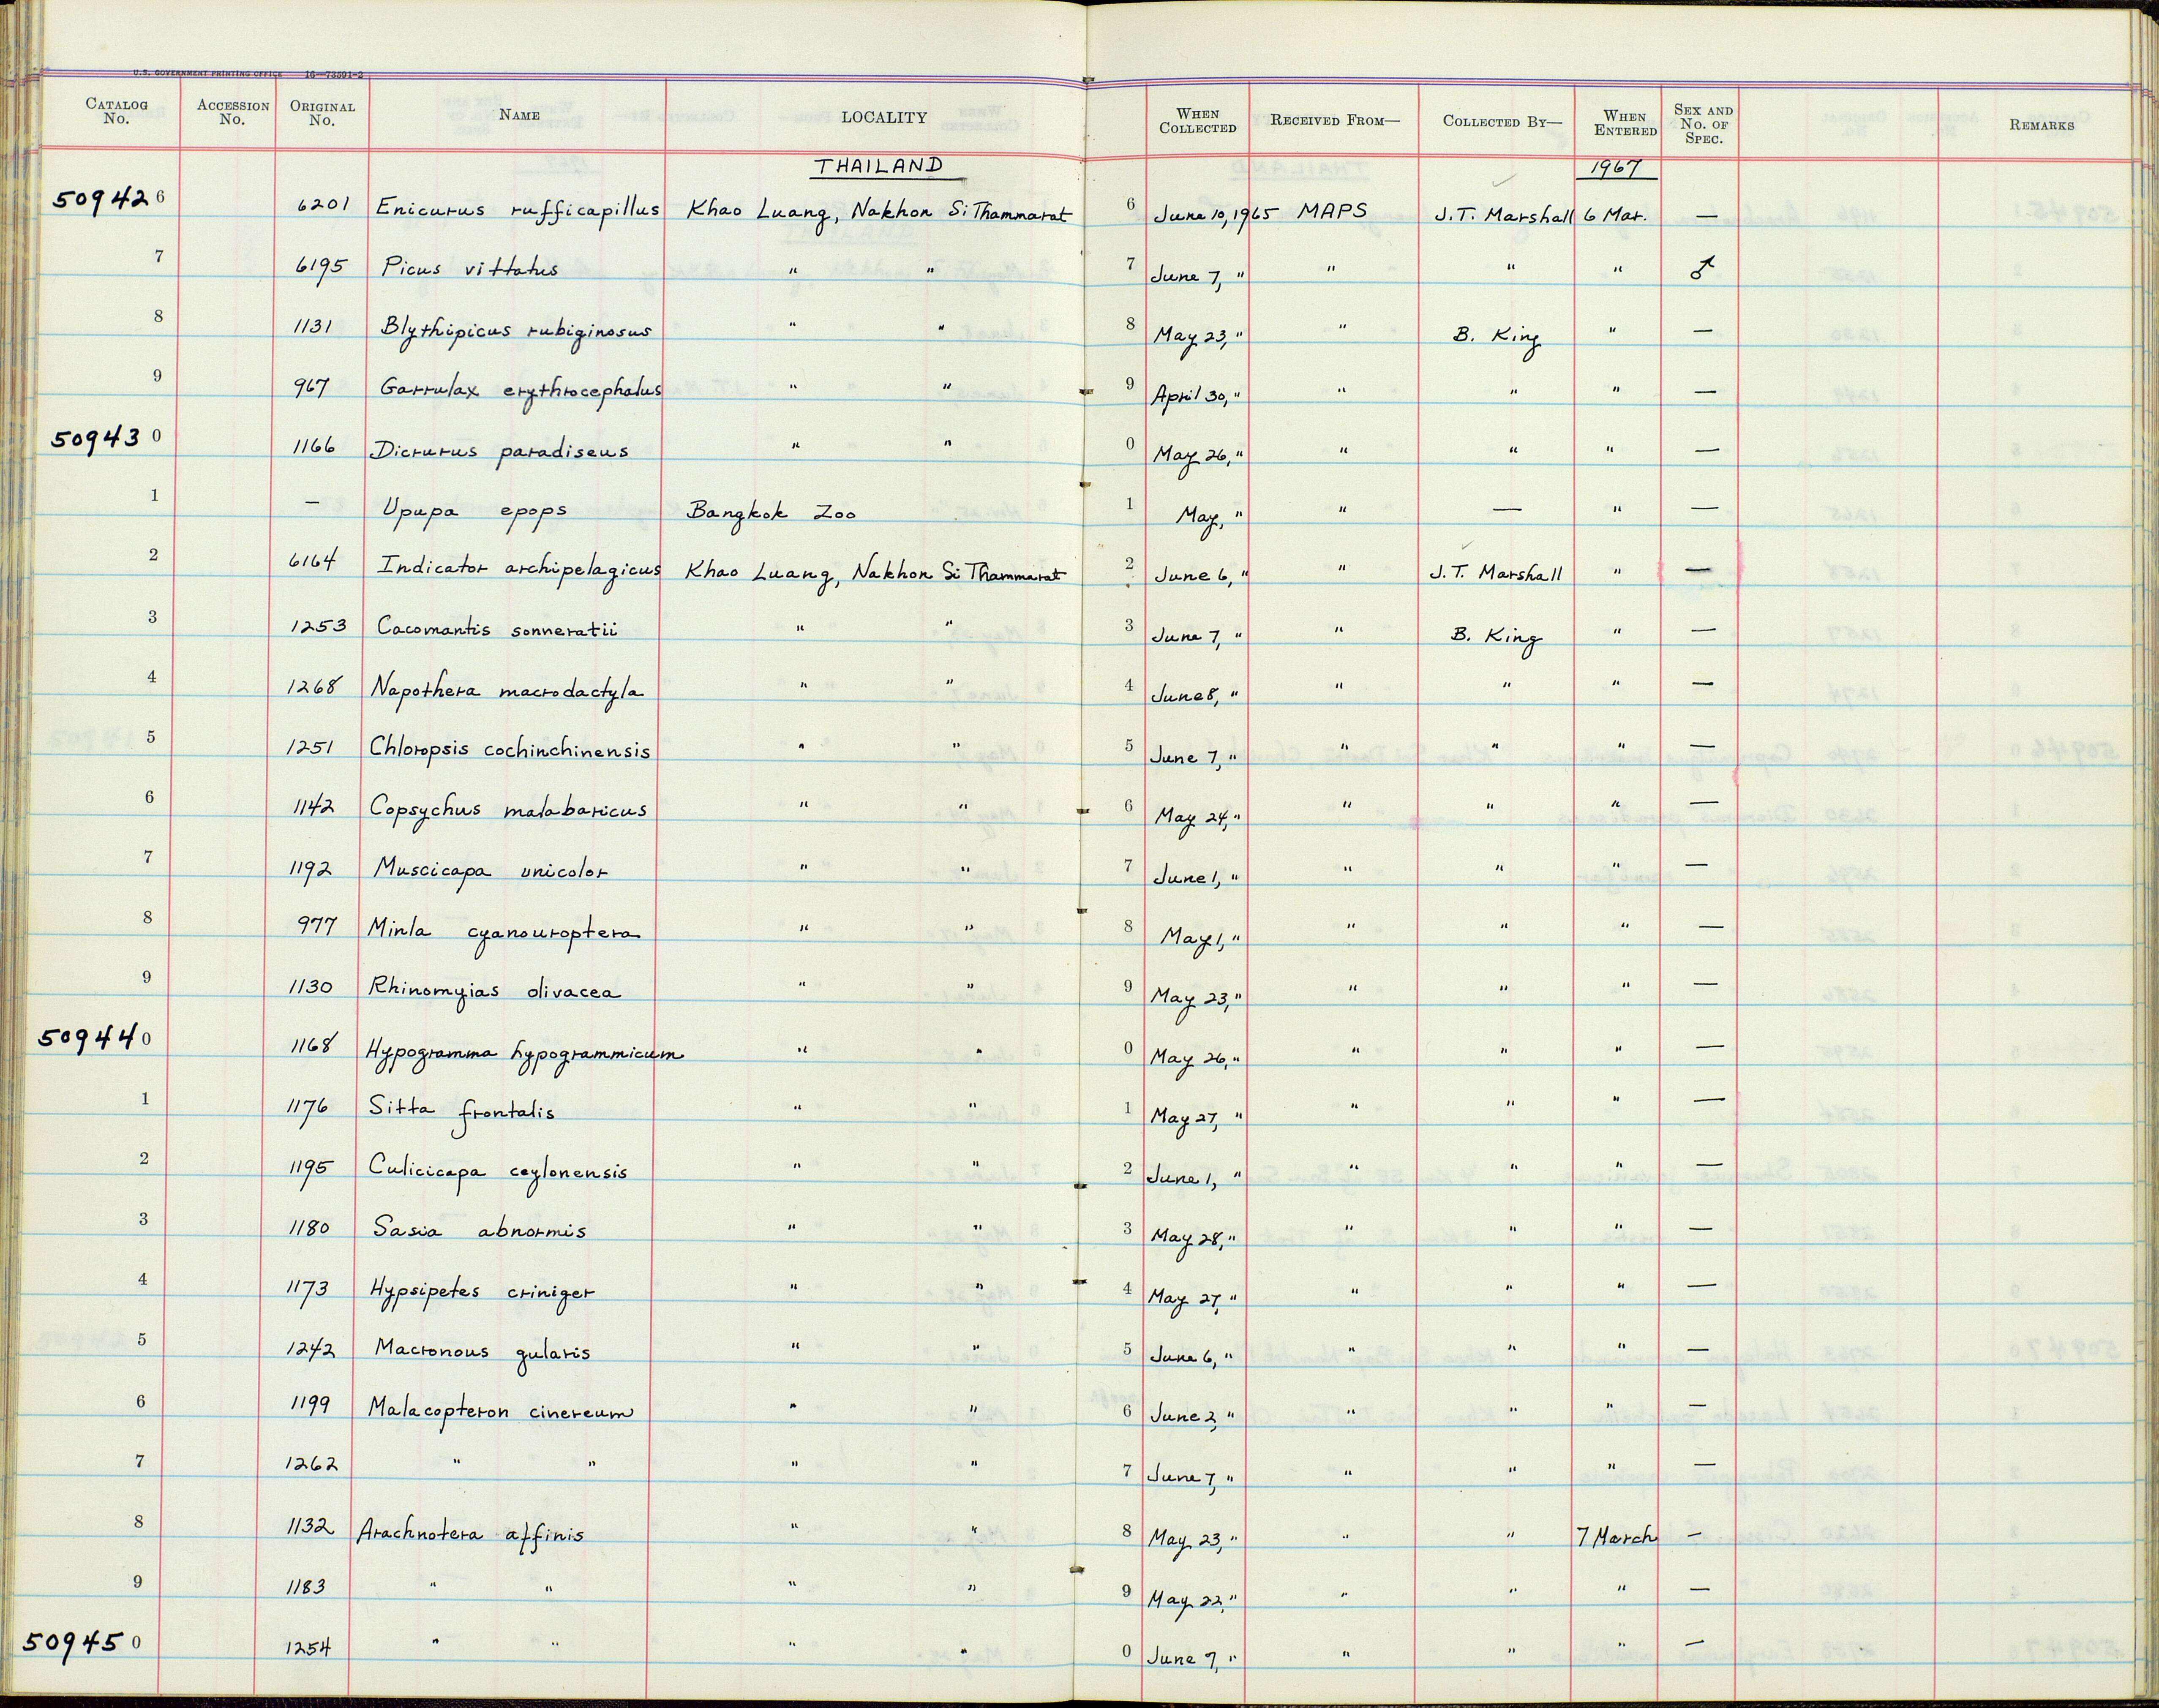 U.S. GOVERNMENT PRINTING OFFICE 16—73591-2
CATALOG No. ACCESSION No. ORIGINAL No. NAME LOCALITY WHEN COLLECTED RECEIVED FROM— COLLECTED BY— WHEN ENTERED SEX AND No. OF SPEC. REMARKS
THAILAND 1967
509426 6201 Enicurus rufficapillus Khao Luang, Nakhon Si Thammarat 6 June 10, 1965 MAPS J.T. Marshall 6 Mar. —
7 6195 Picus vittatus " " 7 June 7, " " " " ♂
8 1131 Blythipicus rubiginosus " " 8 May 23, " " B. King " —
9 967 Garrulax erythrocephalus " " 9 April 30, " " " " —
509430 1166 Dicrurus paradiseus " " 0 May 26, " " " " —
1 — Upupa epops Bangkok Zoo 1 May, " " — " —
2 6164 Indicator archipelagicus Khao Luang, Nakhon Si Thammarat 2 June 6, " " J.T. Marshall " —
3 1253 Cacomantis sonneratii " " 3 June 7, " " B. King " —
4 1268 Napothera macrodactyla " " 4 June 8, " " " " —
5 1251 Chloropsis cochinchinensis " " 5 June 7, " " " " —
6 1142 Copsychus malabaricus " " 6 May 24, " " " " —
7 1192 Muscicapa unicolor " " 7 June 1, " " " " —
8 977 Minla cyanouroptera " " 8 May 1, " " " " —
9 1130 Rhinomyias olivacea " " 9 May 23, " " " " —
509440 1168 Hypogramma hypogrammicum " " 0 May 26, " " " " —
1 1176 Sitta frontalis " " 1 May 27, " " " " —
2 1195 Culicicapa ceylonensis " " 2 June 1, " " " " —
3 1180 Sasia abnormis " " 3 May 28, " " " " —
4 1173 Hypsipetes criniger " " 4 May 27, " " " " —
5 1242 Macronous gularis " " 5 June 6, " " " " —
6 1199 Malacopteron cinereum " " 6 June 2, " " " " —
7 1262 " " " " 7 June 7, " " " " —
8 1132 Arachnotera affinis " " 8 May 23, " " " 7 March —
9 1183 " " " " 9 May 22, " " " " —
509450 1254 " " " " 0 June 7, " " " " —